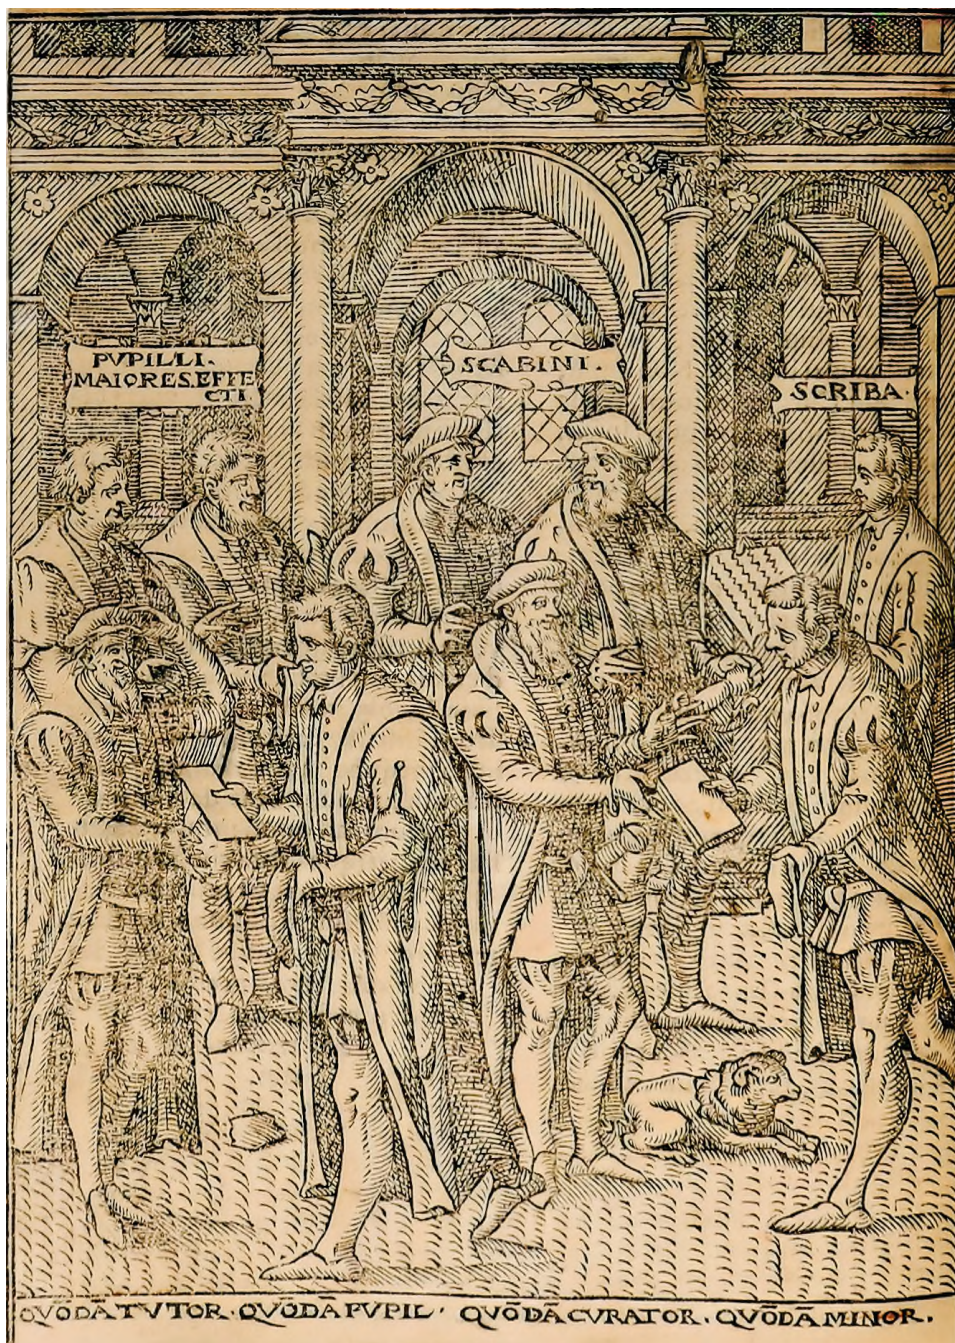 PVPILLI.
MAIORES.EFFE
CTI.
SCABINI.
SCRIBA.
QVŌDĀ TVTOR. QVŌDĀ PVPIL. QVŌDĀ CVRATOR. QVŌDĀ MINOR.